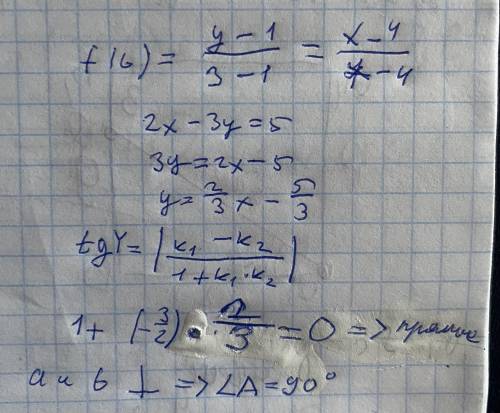 f(b) = (y - 1)/(3 - 1) = (x - 4)/(7 - 4)
2x - 3y = 5
3y = 2x - 5
y = 2/3 x - 5/3
tgγ = |(k₁ - k₂)/(1 + k₁·k₂)|
1 + (-3/2) · 2/3 = 0 => прямые
a и b ⊥ => ∠A = 90°